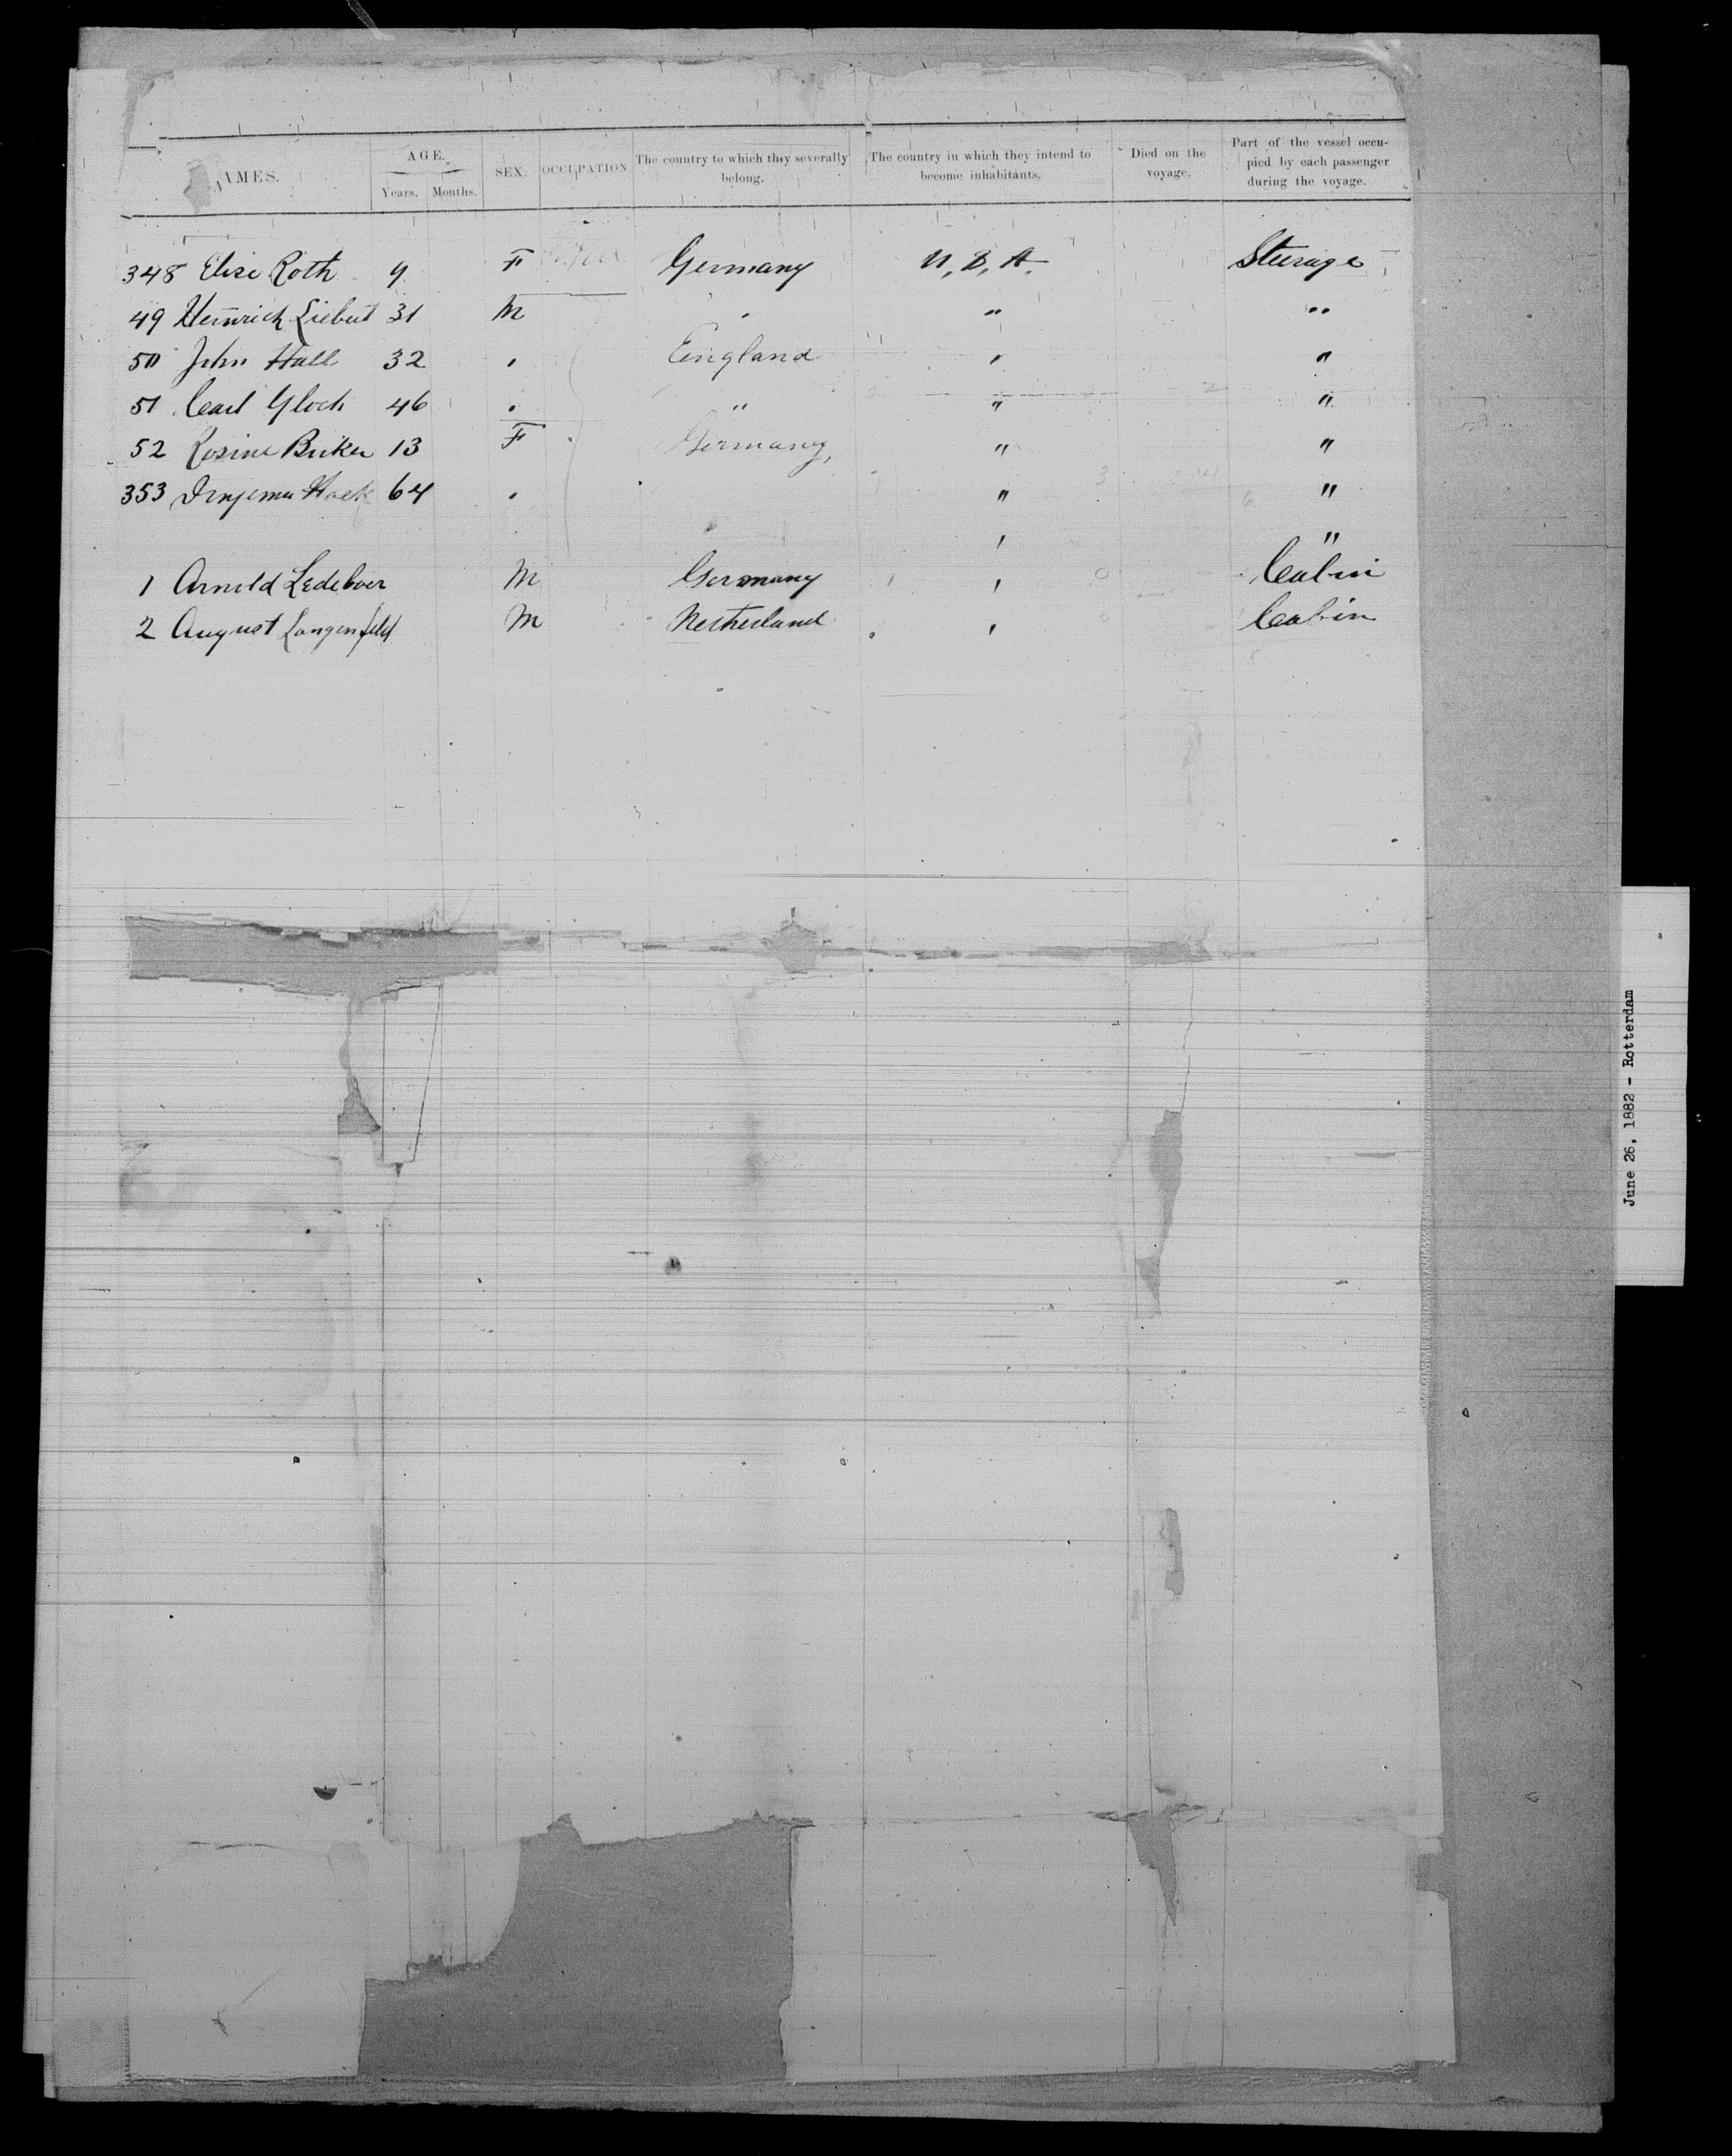 AMES. AGE. Years. Months. SEX. OCCUPATION The country to which they severally belong. The country in which they intend to become inhabitants. Died on the voyage. Part of the vessel occupied by each passenger during the voyage.
348 Elise Roth 9 F Germany U, S, A. Steerage
49 Heinrich Liebut 31 M " " "
50 John Hall 32 " England " "
51 Carl Gloch 46 " " " "
52 Rosine Bricker 13 F Germany, " "
353 Hoek 64 " " "
" "
1 Arnold Ledeboer M Germany " Cabin
2 August Langenfeld M Netherland " Cabin
June 26, 1882 - Rotterdam